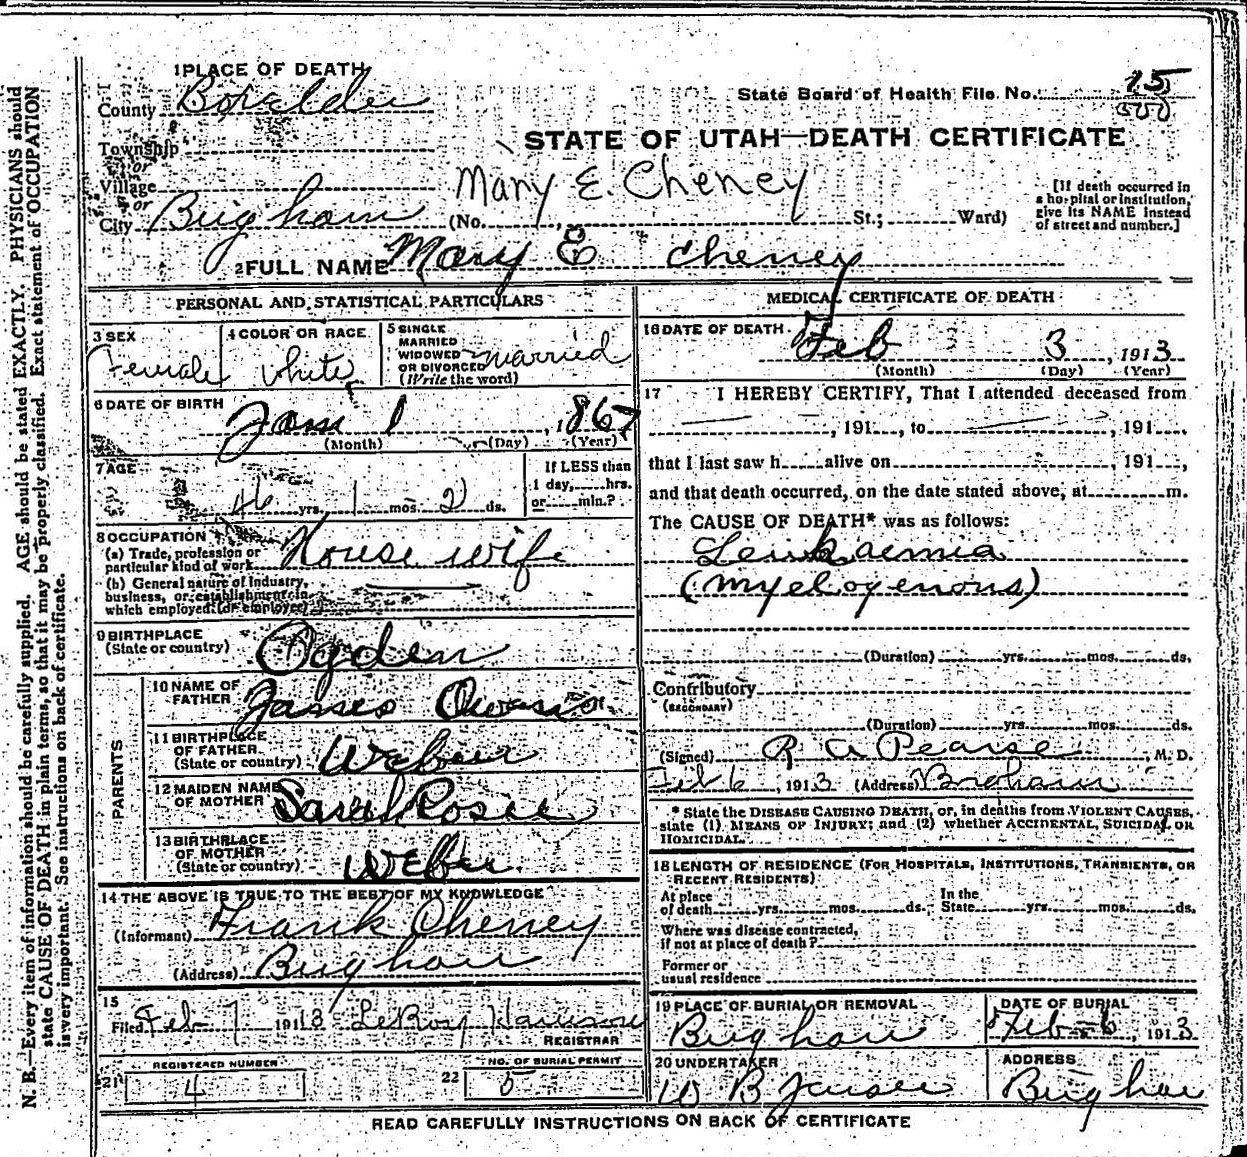 1 PLACE OF DEATH
County Boxelder
State Board of Health File No. 15
500
STATE OF UTAH—DEATH CERTIFICATE
Township
or
Village
or
City Brigham
Mary E. Cheney
(No. St.; Ward)
[If death occurred in a hospital or institution, give its NAME instead of street and number.]
2 FULL NAME Mary E Cheney
PERSONAL AND STATISTICAL PARTICULARS
3 SEX
Female
4 COLOR OR RACE
White
5 SINGLE
MARRIED
WIDOWED
OR DIVORCED
(Write the word)
married
6 DATE OF BIRTH
Jan 1, 1867
(Month) (Day) (Year)
7 AGE
46 yrs. 1 mos. 2 ds.
If LESS than
1 day, hrs.
or min.?
8 OCCUPATION
(a) Trade, profession or
particular kind of work House wife
(b) General nature of industry,
business, or establishment in
which employed (or employer)
9 BIRTHPLACE
(State or country) Ogden
PARENTS
10 NAME OF
FATHER James Owens
11 BIRTHPLACE
OF FATHER
(State or country) Weber
12 MAIDEN NAME
OF MOTHER Sarah Rosee
13 BIRTHPLACE
OF MOTHER
(State or country) Weber
14 THE ABOVE IS TRUE TO THE BEST OF MY KNOWLEDGE
(Informant) Frank Cheney
(Address) Brigham
15
Filed Feb 7 1913 LeRoy Harrison
REGISTRAR
REGISTERED NUMBER
21 4
NO. OF BURIAL PERMIT
22 5
MEDICAL CERTIFICATE OF DEATH
16 DATE OF DEATH
Feb 3, 1913
(Month) (Day) (Year)
17 I HEREBY CERTIFY, That I attended deceased from
, 191 , to , 191
that I last saw h alive on , 191 ,
and that death occurred, on the date stated above, at m.
The CAUSE OF DEATH* was as follows:
Leukaemia
(myelogenous)
(Duration) yrs. mos. ds.
Contributory
(SECONDARY)
(Duration) yrs. mos. ds.
(Signed) R A Pearse, M. D.
Feb 6, 1913 (Address) Brigham
* State the DISEASE CAUSING DEATH, or, in deaths from VIOLENT CAUSES,
state (1) MEANS OF INJURY; and (2) whether ACCIDENTAL, SUICIDAL OR
HOMICIDAL.
18 LENGTH OF RESIDENCE (FOR HOSPITALS, INSTITUTIONS, TRANSIENTS, OR
RECENT RESIDENTS)
At place
of death yrs. mos. ds.
In the
State yrs. mos. ds.
Where was disease contracted,
if not at place of death?
Former or
usual residence
19 PLACE OF BURIAL OR REMOVAL
Brigham
DATE OF BURIAL
Feb 6, 1913
20 UNDERTAKER
W B Jensen
ADDRESS
Brigham
READ CAREFULLY INSTRUCTIONS ON BACK OF CERTIFICATE
N. B.—Every item of information should be carefully supplied. AGE should be stated EXACTLY. PHYSICIANS should
state CAUSE OF DEATH in plain terms, so that it may be properly classified. Exact statement of OCCUPATION
is very important. See instructions on back of certificate.